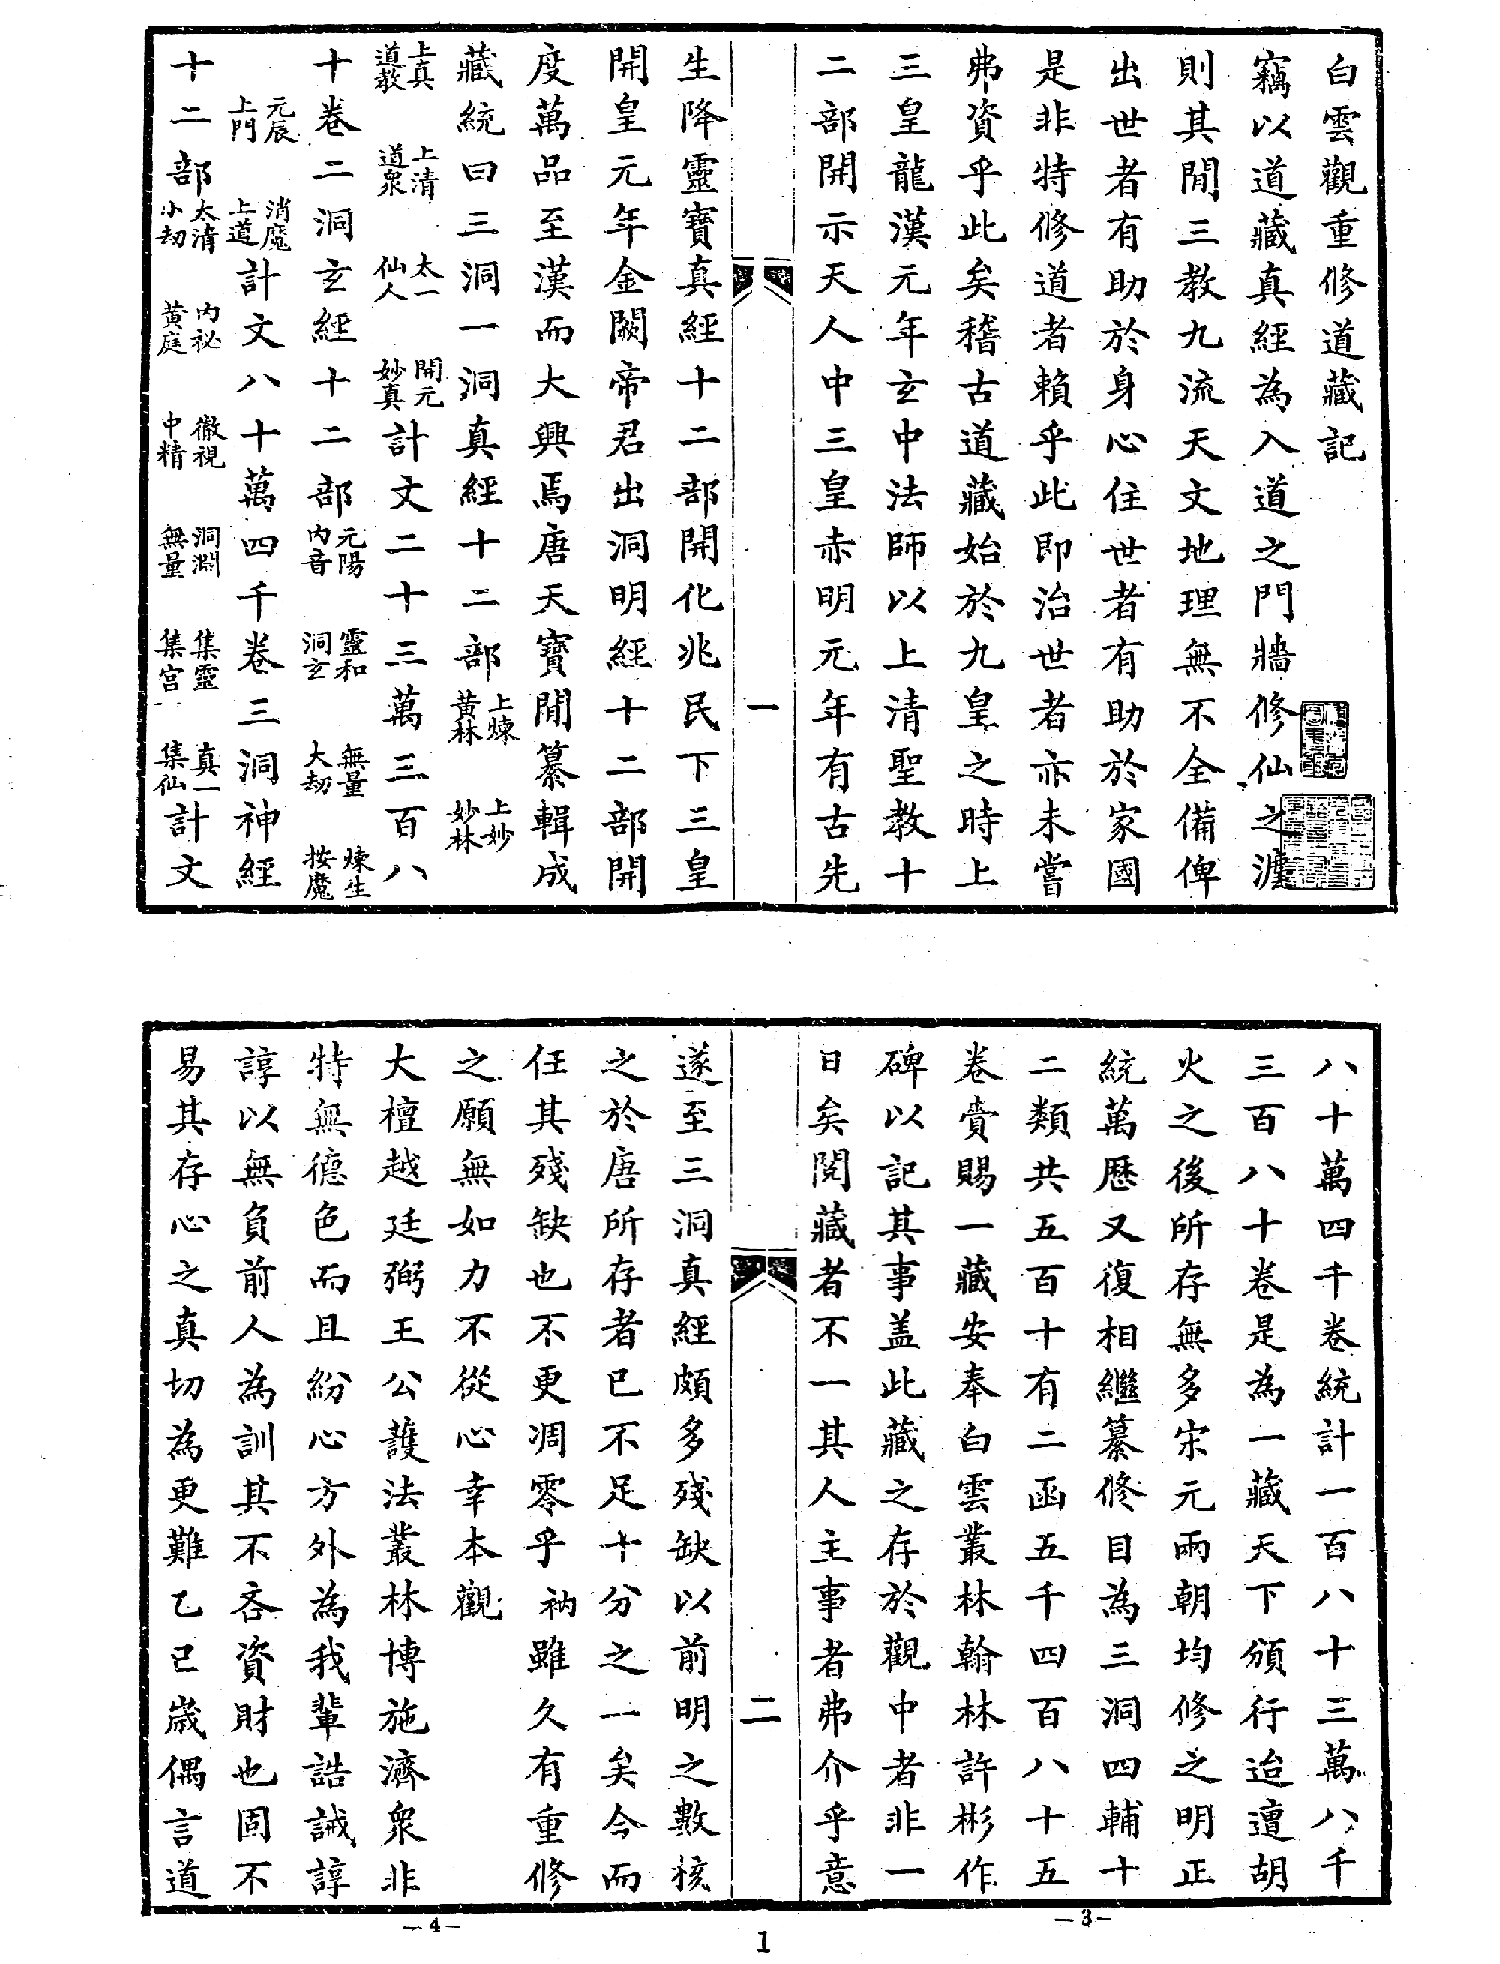 白雲觀重修道藏記
竊以道藏真經為入道之門牆修仙之
則其閒三教九流天文地理無不全備俾
出世者有助於身心住世者有助於家國
是非特修道者賴乎此即治世者亦未嘗
弗資乎此矣稽古道藏始於九皇之時上
三皇龍漢元年玄中法師以上清聖教十
二部開示天人中三皇赤明元年有古先
一
生降靈寶真經十二部開化兆民下三皇
開皇元年金闕帝君出洞明經十二部開
度萬品至漢而大興焉唐天寶閒纂輯成
藏統曰三洞一洞真經十二部上煉黃林 上妙妙林
上真道教 上清道眾 太一仙人 開元妙真計文二十三萬三百八
十卷二洞玄經十二部元陽內音 靈和洞玄 無量大劫 煉生按魔
元辰上門 消魔上道計文八十萬四千卷三洞神經
十二部太清小劫 內祕黃庭 徹視中精 洞淵無量 集靈集宮 真一集仙計文
八十萬四千卷統計一百八十三萬八千
三百八十卷是為一藏天下頒行迨遭胡
火之後所存無多宋元兩朝均修之明正
統萬曆又復相繼纂修目為三洞四輔十
二類共五百十有二函五千四百八十五
卷賞賜一藏安奉白雲叢林翰林許彬作
碑以記其事蓋此藏之存於觀中者非一
日矣閱藏者不一其人主事者弗介乎意
二
遂至三洞真經頗多殘缺以前明之數核
之於唐所存者已不足十分之一矣今而
任其殘缺也不更凋零乎衲雖久有重修
之願無如力不從心幸本觀
大檀越廷弼王公護法叢林博施濟眾非
特無德色而且紛心方外為我輩誥誡諄
諄以無負前人為訓其不吝資財也固不
易其存心之真切為更難乙巳歲偶言道
—4—
—3—
1